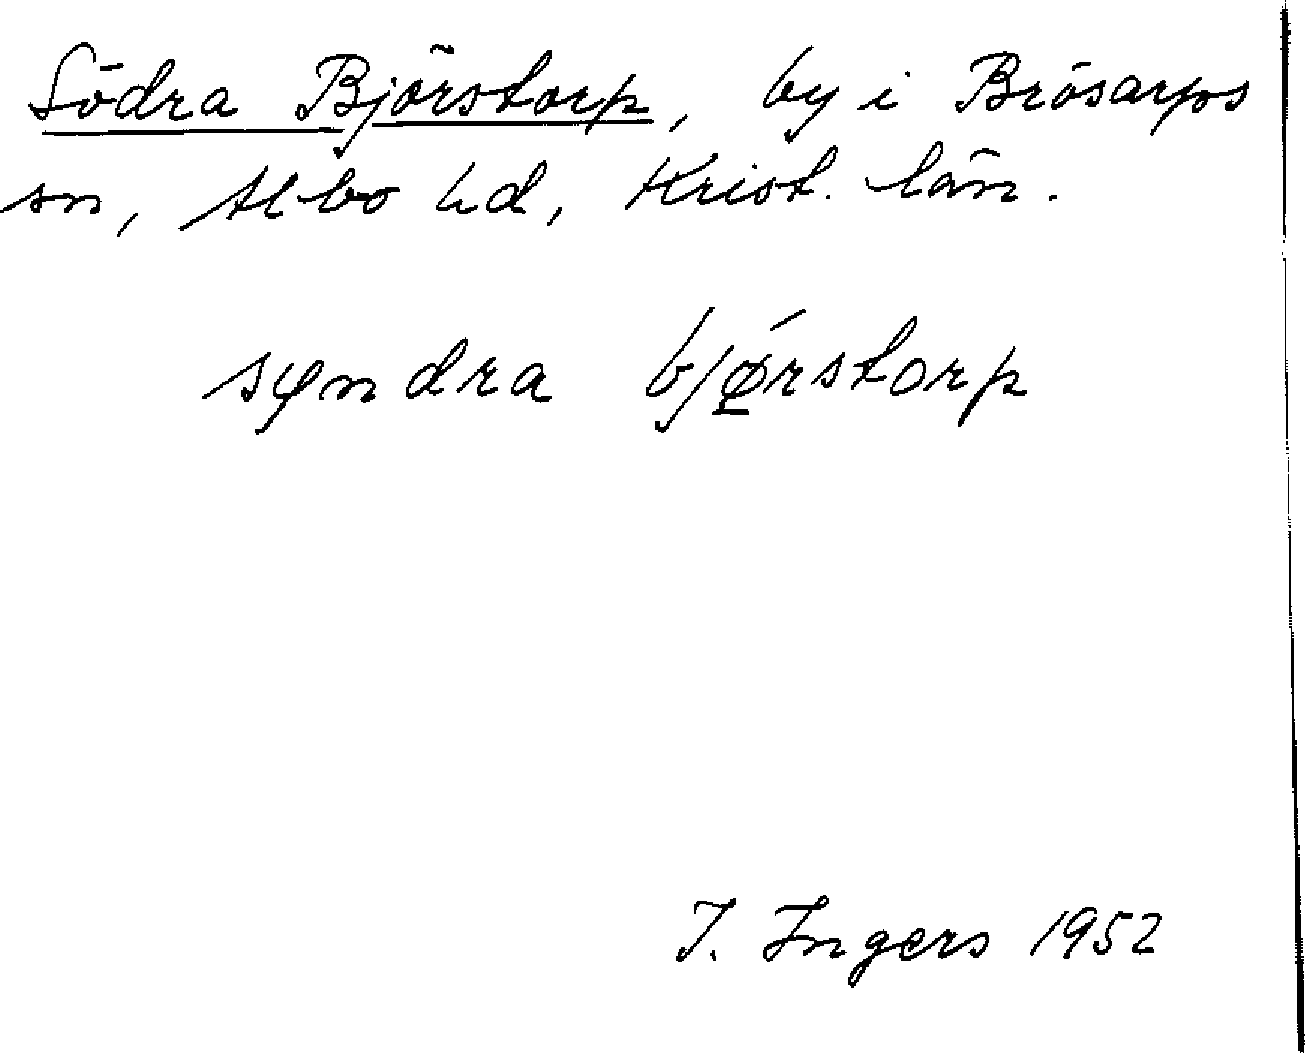 Södra Björstorp, by i Brösarps
sn, Albo hd, Krist. län.
syndra bjørstorp
I. Ingers 1952